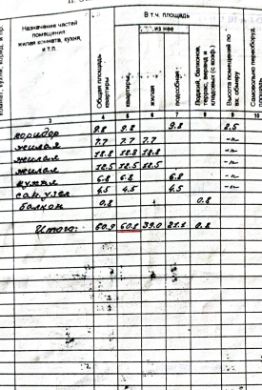 Назначение частей помещения
жилая комната, кухня, и т.п.
Общая площадь квартиры
В т.ч. площадь
квартиры
из нее
жилая
подсобная
Лоджий, балконов, террас, веранд и кладовых (с коэф.)
Высота помещений по вн. обмеру
Самовольно переоборуд. площадь
3 4 5 6 7 8 9 10
коридор 9.8 9.8 9.8 2.5
жилая 7.7 7.7 7.7 -"-
жилая -"-
жилая 12.5 12.5 12.5 -"-
кухня 6.8 6.8 6.8 -"-
сан.узел 4.5 4.5 4.5 -"-
балкон 0.8 0.8
Итого: 60.9 60.1 39.0 21.1 0.8